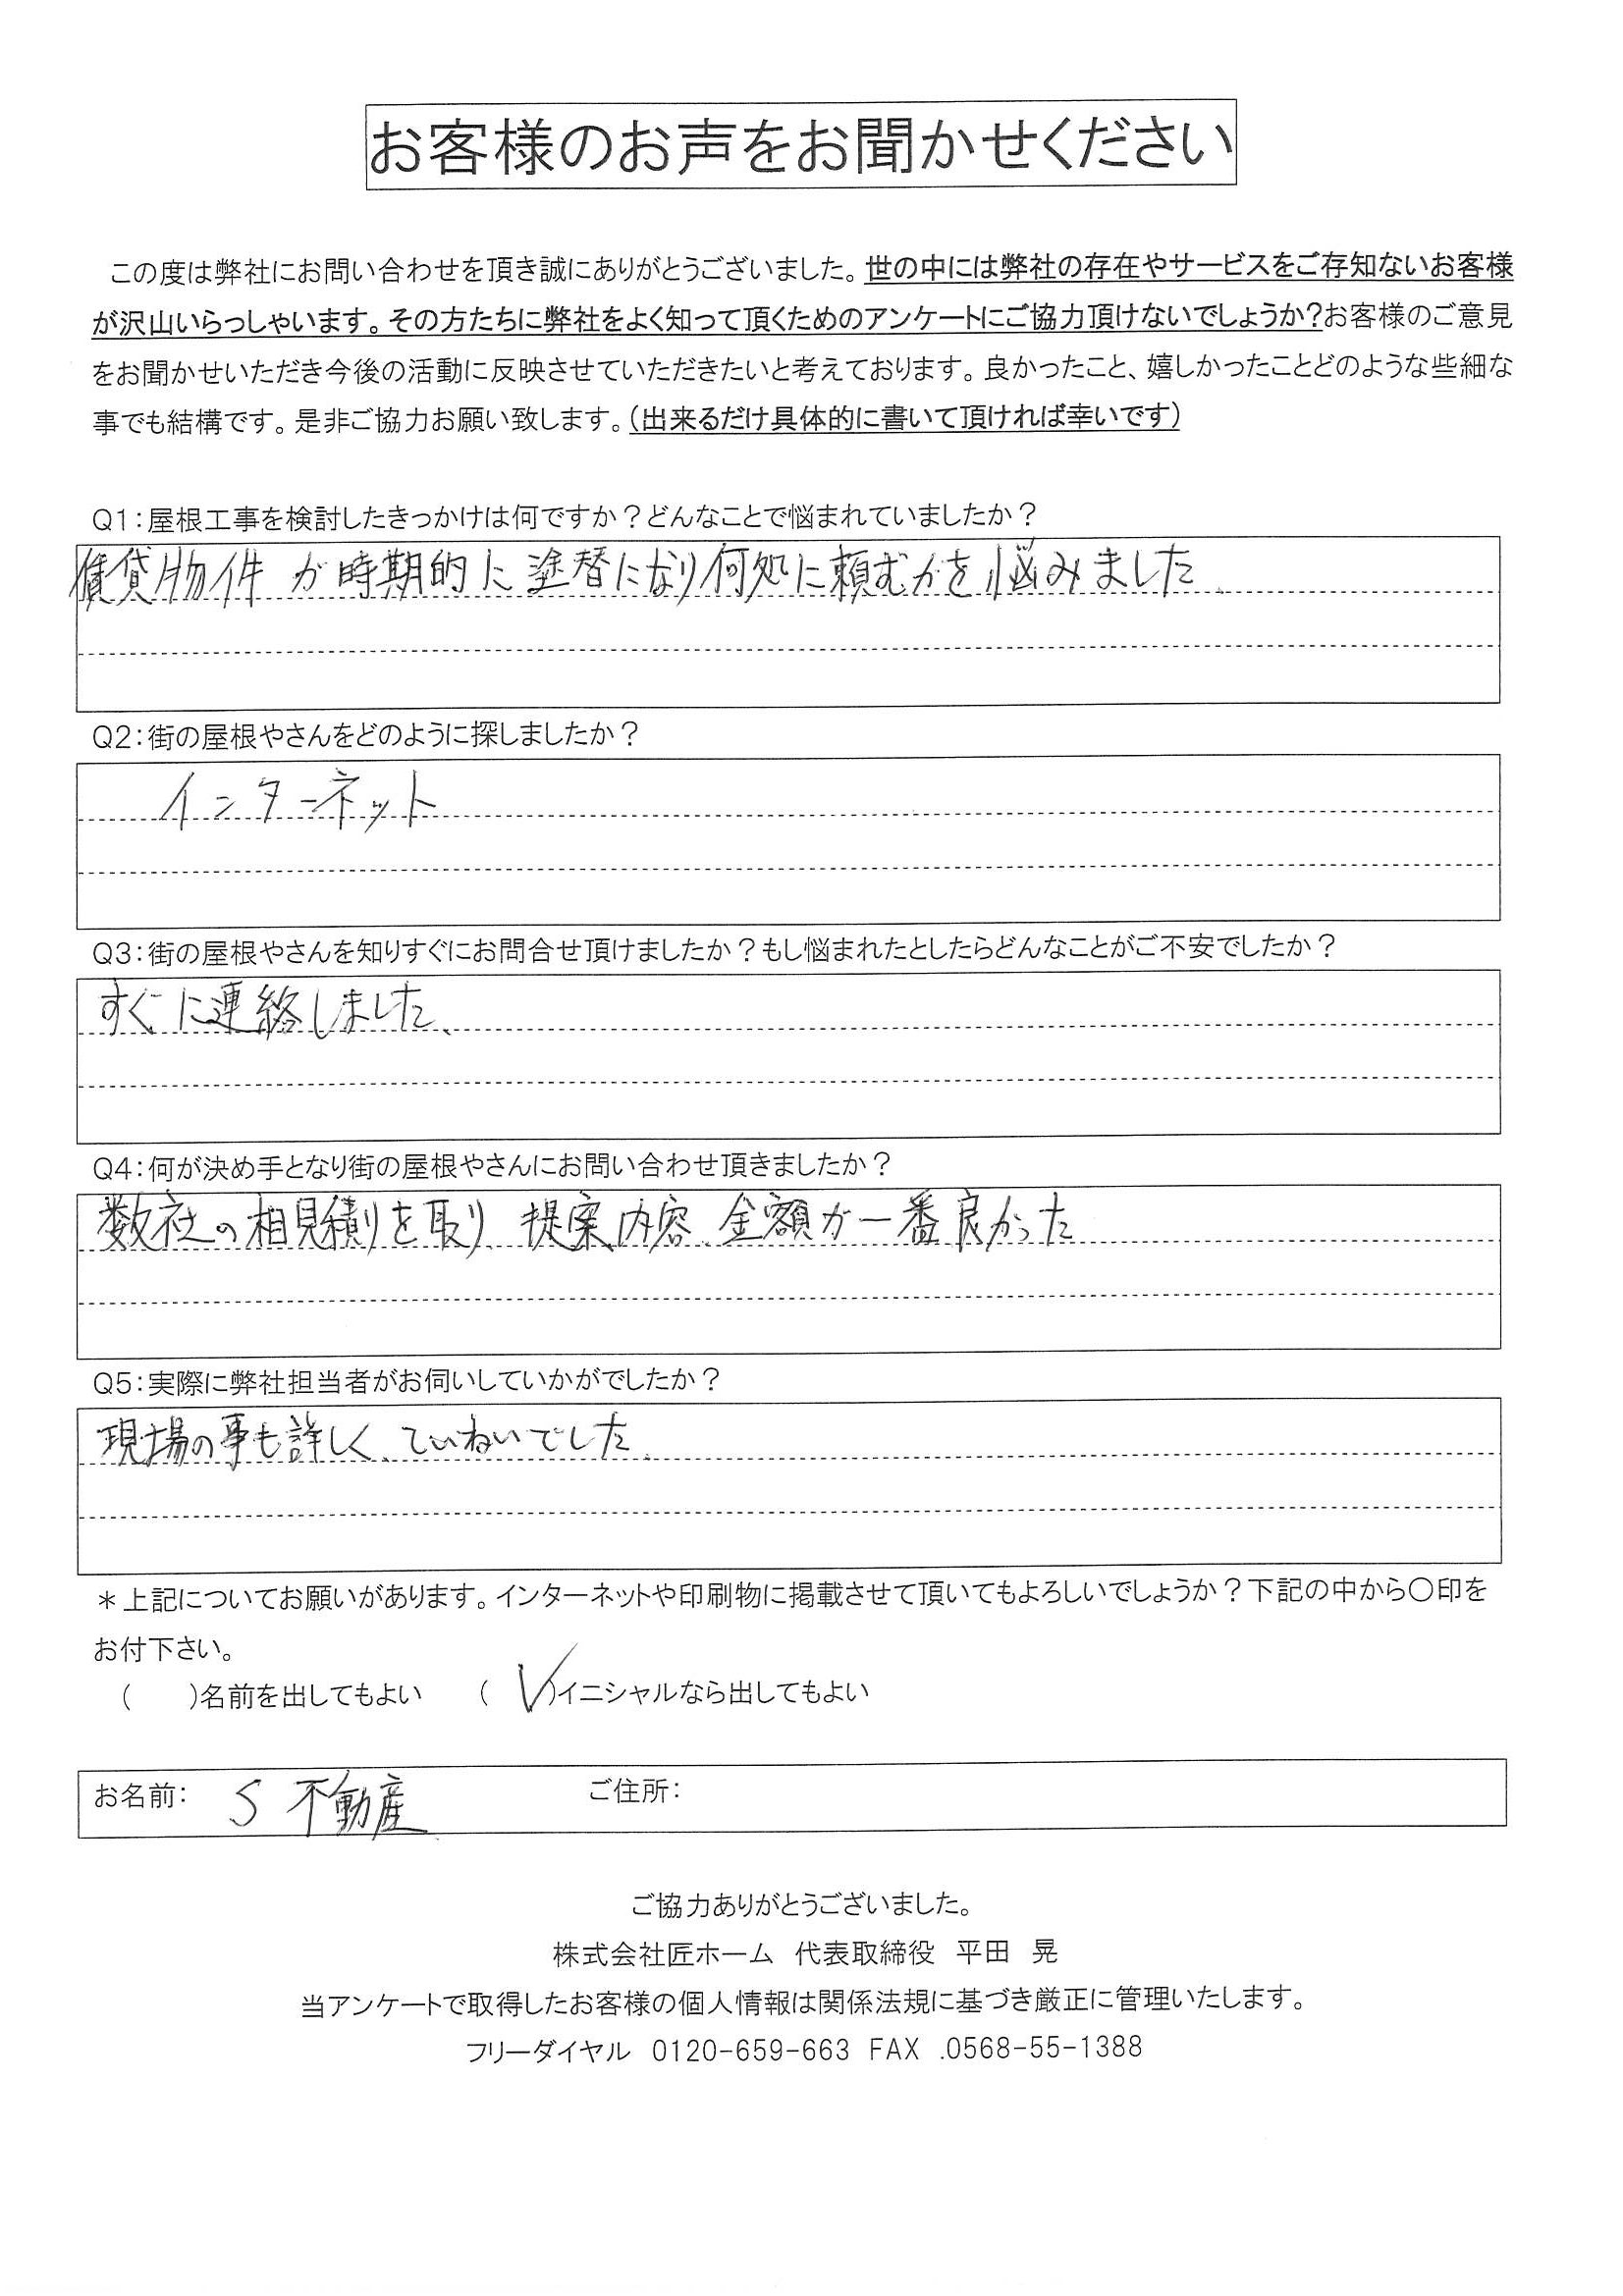 お客様のお声をお聞かせください
この度は弊社にお問い合わせを頂き誠にありがとうございました。世の中には弊社の存在やサービスをご存知ないお客様
が沢山いらっしゃいます。その方たちに弊社をよく知って頂くためのアンケートにご協力頂けないでしょうか?お客様のご意見
をお聞かせいただき今後の活動に反映させていただきたいと考えております。良かったこと、嬉しかったことどのような些細な
事でも結構です。是非ご協力お願い致します。(出来るだけ具体的に書いて頂ければ幸いです)
Q1:屋根工事を検討したきっかけは何ですか?どんなことで悩まれていましたか?
賃貸物件が時期的に塗替になり何処に頼むかを悩みました、
Q2:街の屋根やさんをどのように探しましたか?
インターネット
Q3:街の屋根やさんを知りすぐにお問合せ頂けましたか?もし悩まれたとしたらどんなことがご不安でしたか?
すぐに連絡しました、
Q4:何が決め手となり街の屋根やさんにお問い合わせ頂きましたか?
数社の相見積りを取り、提案内容、金額が一番良かった
Q5:実際に弊社担当者がお伺いしていかがでしたか?
現場の事も詳しく、ていねいでした、
*上記についてお願いがあります。インターネットや印刷物に掲載させて頂いてもよろしいでしょうか?下記の中から〇印を
お付下さい。
(　　)名前を出してもよい　(　✓)イニシャルなら出してもよい
お名前: S 不動産　ご住所:
ご協力ありがとうございました。
株式会社匠ホーム　代表取締役　平田　晃
当アンケートで取得したお客様の個人情報は関係法規に基づき厳正に管理いたします。
フリーダイヤル　0120-659-663 FAX .0568-55-1388